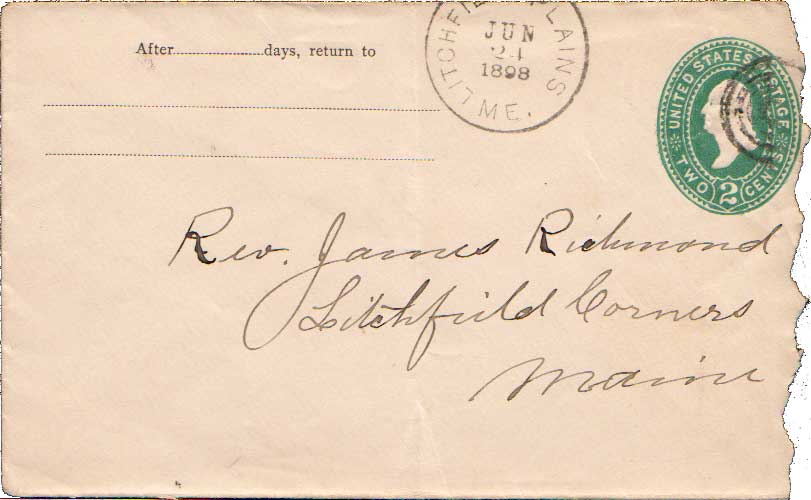 After............days, return to
LITCHFIELD PLAINS
JUN
24
1898
ME.
UNITED STATES POSTAGE
TWO 2 CENTS
Rev. James Richmond
Litchfield Corners
Maine